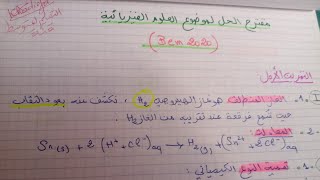 مقترح الحل لموضوع العلوم الفيزيائية
(Bem 2020)
التمرين الأول
I. 1. الغاز المنطلق هو غاز الهيدروجين H₂، نكشف عنه بعود الثقاب
حيث تحدث فرقعة عند تقريبه من الغاز H₂
2. المعادلة:
Sn(s) + 2(H⁺ + Cl⁻)aq → H₂(g) + (Sn²⁺ + 2Cl⁻)aq
النوع الكيميائي